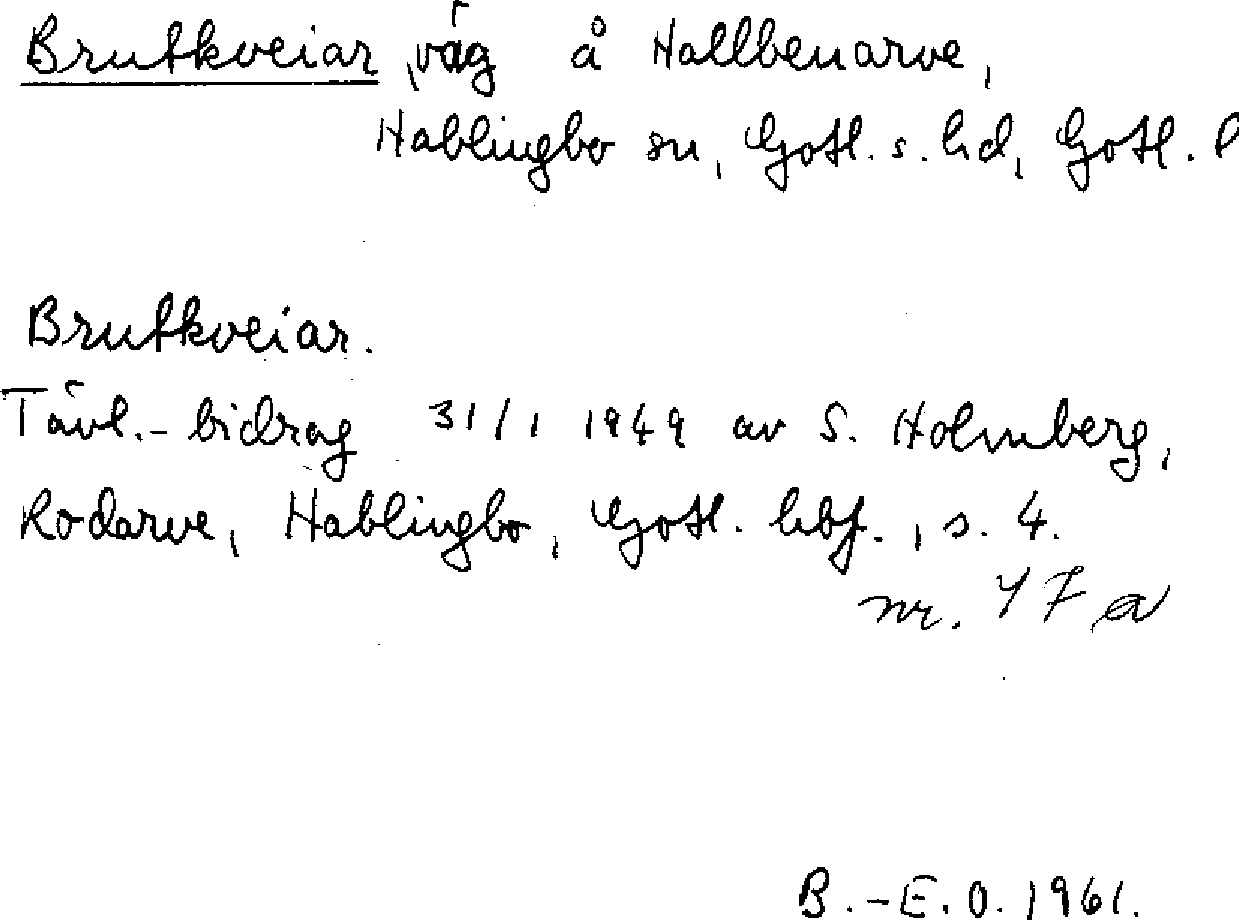 Brutkveiar, väg å Hallbenarve,
Hablingbo sn, Gotl. s. hd, Gotl. l
Brutkveiar.
Tävl.-bidrag 31/1 1949 av S. Holmberg,
Rodarve, Hablingbo, Gotl. hbf., s. 4.
nr. 47 a
B.-E.O. 1961.